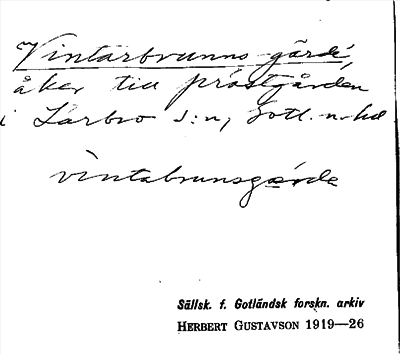 Vintarbrunns-gärde,
åker till prästgården
i Lärbro s:n, Gotl. n. hd
vintabrunsgärde
Sällsk. f. Gotländsk forskn. arkiv
HERBERT GUSTAVSON 1919—26